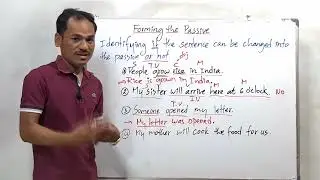 Forming the Passive
Identifying if the sentence can be changed into
the passive or not obj
S T.V C M
① People grow rice in India.
→ Rice is grown in India. M M
② My sister will arrive here at 6 o'clock. NO
I.V
③ Someone opened my letter.
T.V
→ My letter was opened.
④ My mother will cook the food for us.